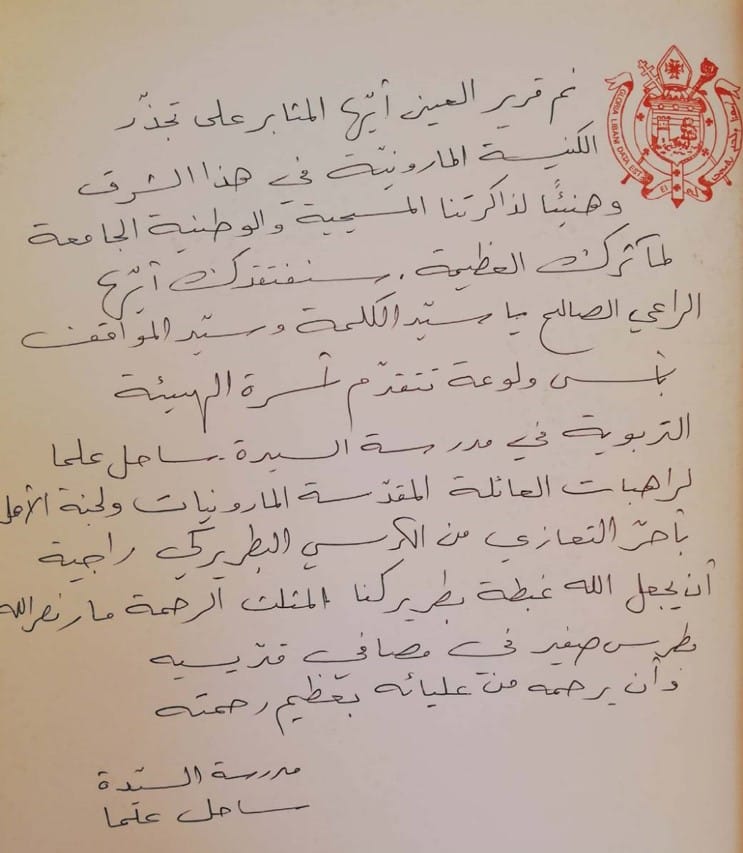 نم قرير العين أيّها المثابر على تجذّر
الكنيسة المارونيّة في هذا الشرق
وهنيئًا لذاكرتنا المسيحية والوطنية الجامعة
لمآثرك العظيمة. سنفتقدك أيّها
الراعي الصالح يا سيّد الكلمة وسيّد المواقف
بأسى ولوعة تتقدّم أسرة الهيئة
التربوية في مدرسة السيدة - ساحل علما
لراهبات العائلة المقدّسة المارونيات ولجنة الأهل
بأحرّ التعازي من الكرسي البطريركي راجية
أن يجعل الله غبطة بطريركنا المثلث الرحمة مار نصرالله
بطرس صفير في مصافي قدّيسيه
وأن يرحمه من عليائه بعظيم رحمته
مدرسة السيّدة
ساحل علما
GLORIA LIBANI DATA EST EI